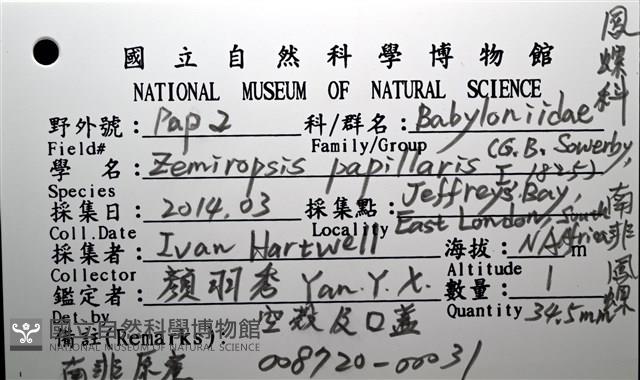 國立自然科學博物館
NATIONAL MUSEUM OF NATURAL SCIENCE
野外號：Pap 2 科/群名：Babyloniidae
Field# Family/Group
學 名：Zemiropsis papillaris (G.B. Sowerby, I 1825)
Species
採集日：2014.03 採集點：Jeffreys Bay,
Coll.Date Locality East London, South Africa
採集者：Ivan Hartwell 海拔：NA m
Collector Altitude
鑑定者：顏羽秀 Yan.Y.X. 數量：1
Det.by Quantity 34.5mm
備註(Remarks)： 空殼及口蓋
南非原產 008720-00031
鳳螺科
南非鳳螺
國立自然科學博物館
NATIONAL MUSEUM OF NATURAL SCIENCE